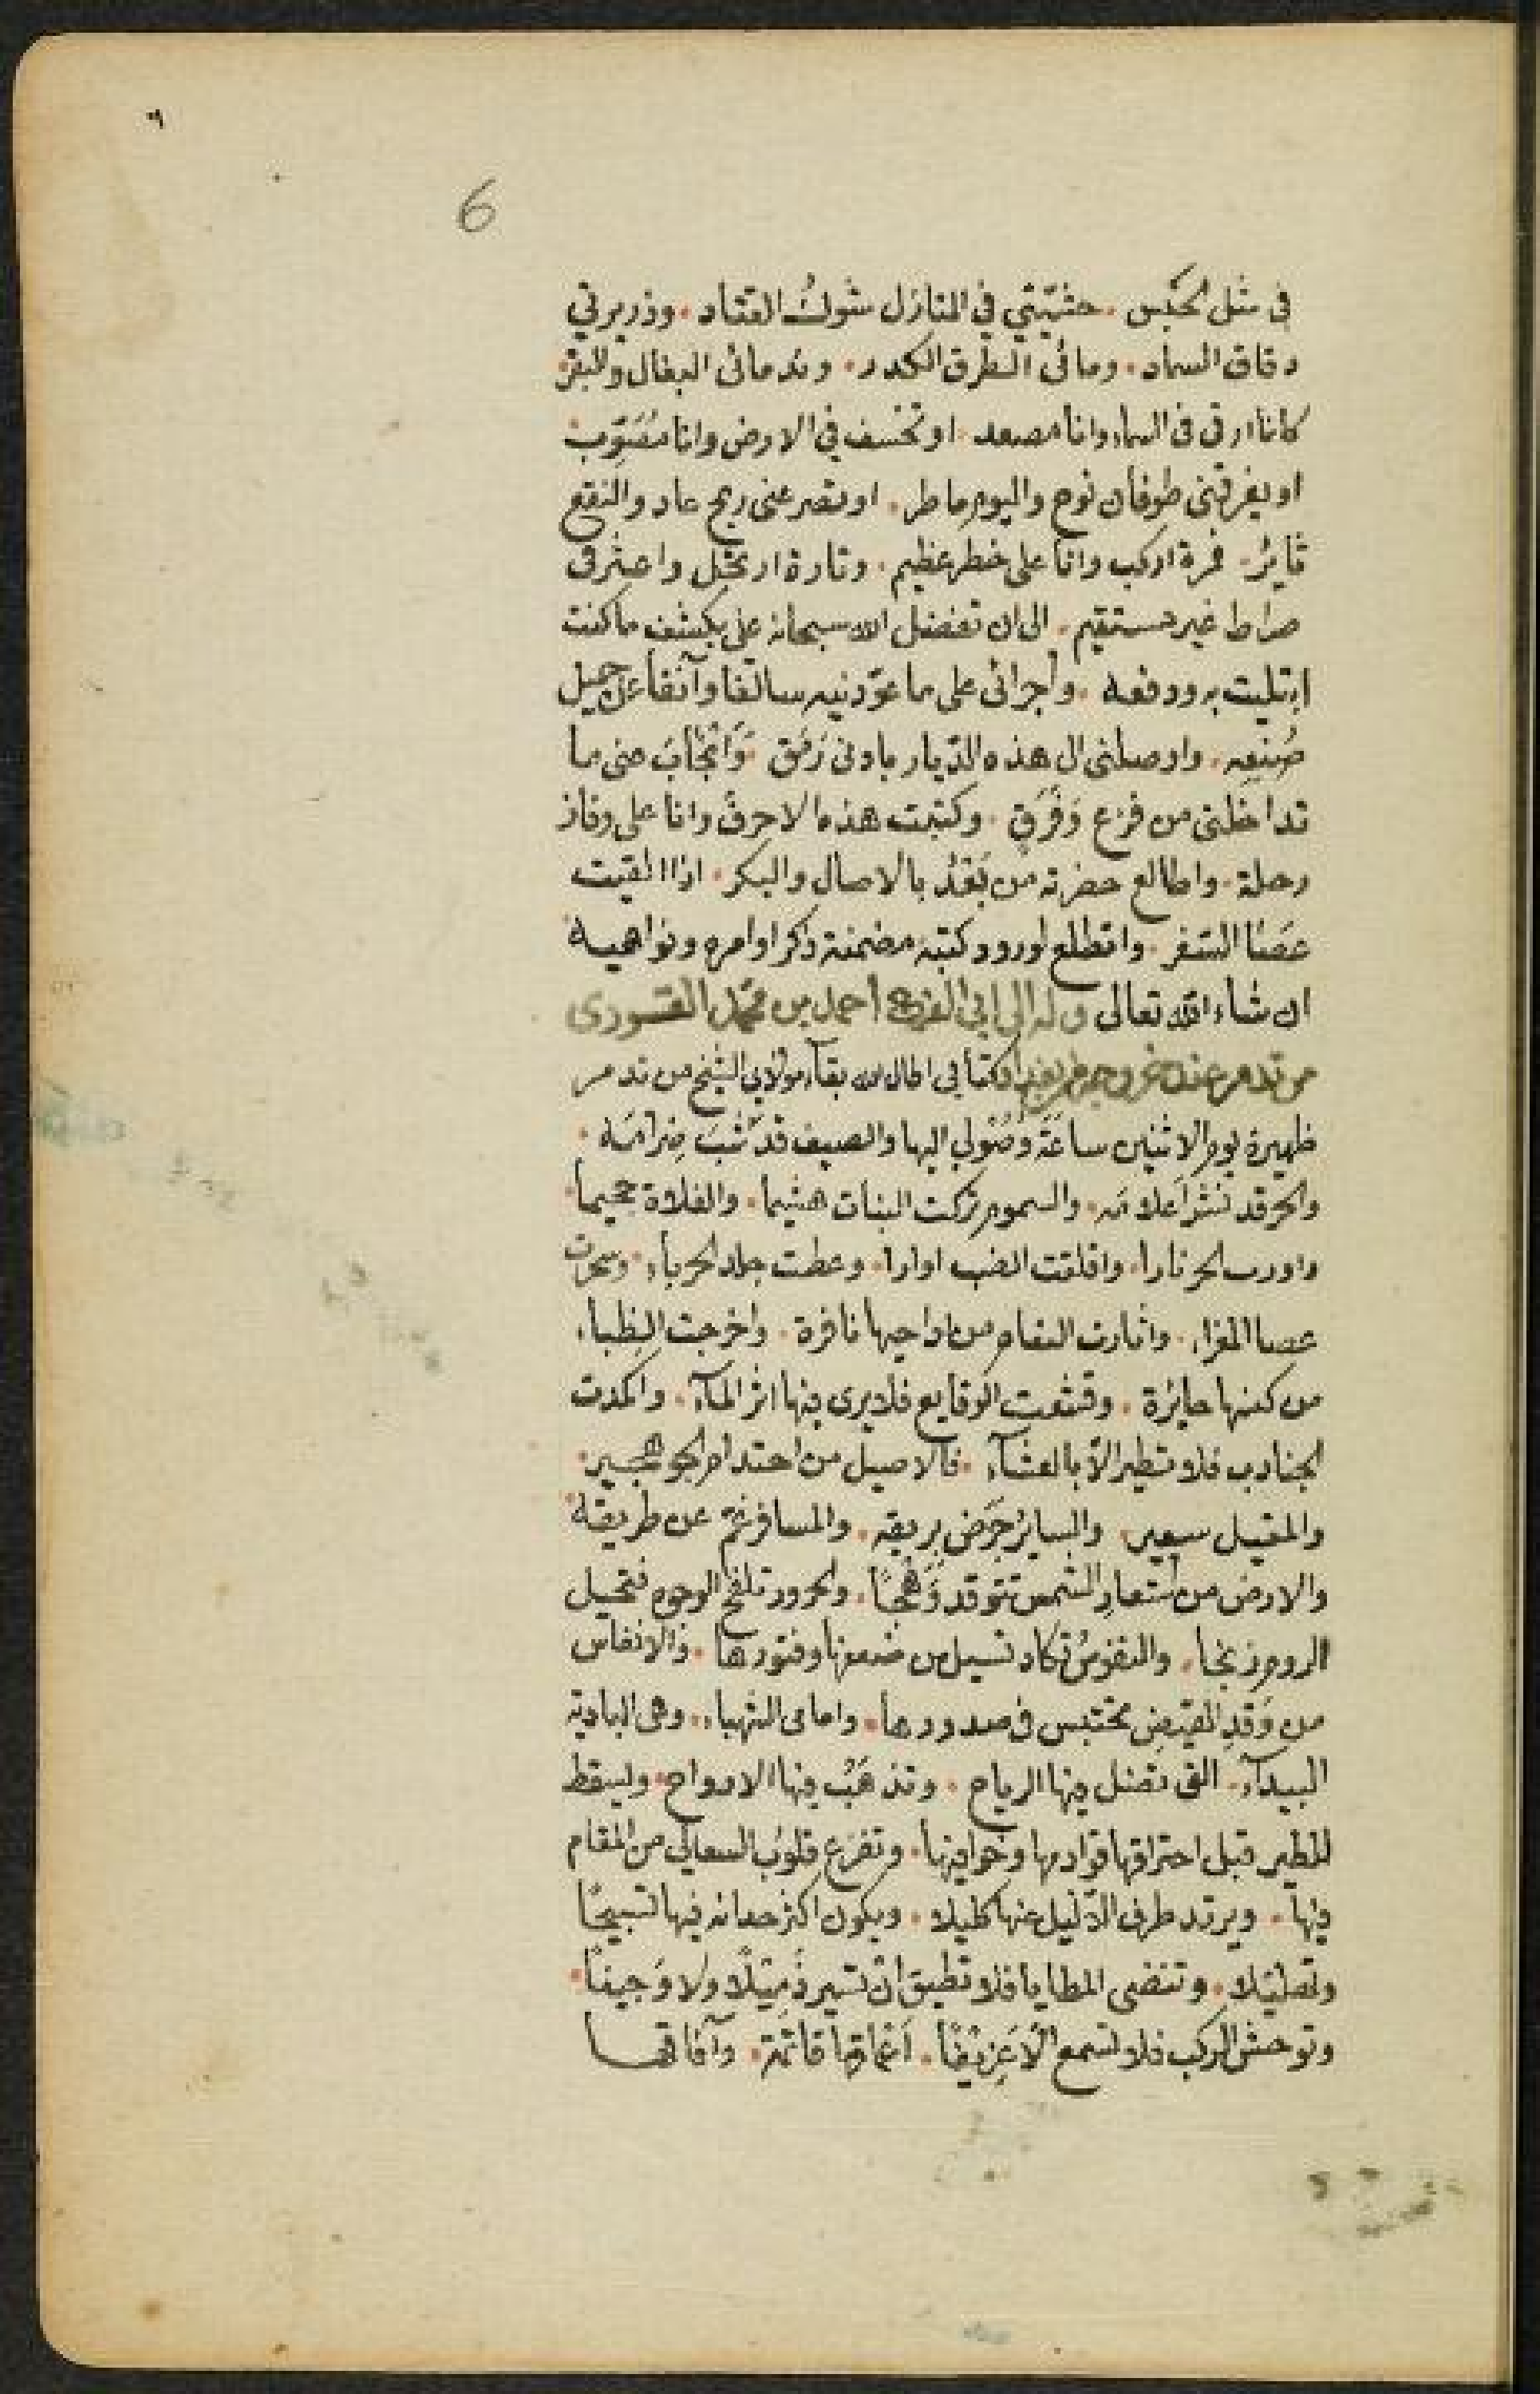 ٦
6
فى مثل الحبس . حثيّتي في المنازل شوكُ القتاد . وذريرتي
دقاق السماد . ومائى الطرق الكدر . وندمائى البغال والبقر .
كانا ارقى فى السماء وانا مصعد . او تخسف في الارض وانا مُصَوِّب .
او يغرقنى طوفان نوح واليوم ماطر . او تصرعنى ريح عاد والنقع
ثايرُ . فمرة اركب وانا على خطر عظيم . وتارة ارتجل واعثر فى
صراط غير مستقيم . الى ان تفضل الله سبحانه على بكشف ما كنت
ابتليت به ودفعه . وأجرانى على ما عوّدنيه سالفا وآنفا عن جميل
صُنعِه . واوصلنى الى هذه الديار بادنى رَمَق . وَانجابَ عنى ما
تداخلنى من فزع وَفَرَقٍ . وكتبت هذه الاحرف وانا على وفاز
رحلة . واطالع حضرته من بَعْدُ بالاصال والبكر . اذا القيت
عَصَا السفر . واتطلع لورود كتبه مضمنة ذكر اوامره ونواهيه
ان شاء الله تعالى وله الى ابي الفرج أحمد بن محمّد القسورى
من تدمر عند خروجه من بغداد كتابي اطال الله بقآء مولاي الشيخ من تدمر
ظهيرة يوم الاثنين ساعَةَ وُصُولي اليها والصيف قد شَبَ ضِرامَه .
والحر قد نشر اَعلامَه . والسموم تركت النبات هشيما . والفلاة جحيما .
واورت الحر نارا . واقلقت الضب اوارا . وعطت جلد الحرباء . وسحرت
عصا المغزاء . واثارت النعام من اداحيها نافرة . واخرجت الظباء .
من كنسها حايرة . وقشعت الوقايع فلا يرى فيها اثر المآء . واكمدت
الجنادب فلا تطير الّا بالعشآء . فالاصيل من احتدام الجو هجير .
والمقيل سعير . والساير جَرَض بريقه . والمسافر عَمّ عن طريقه .
والارض من استعارِ الشمس تتوقد وَهْجًا . والحرور تلفح الوجوه فتحيل
الروم زنجا . والنفوسُ تكاد تسيل من ضعفها وفتورها . والانفاس
من وَقدِ القيض تحتبس فى صدورها . وامامى الشهباء . وهى البادية
البيدآء . التى تضل فيها الرياح . وتذهَبُ فيها الارواح . ويسقط
للطير قبل احتراقها قوادمها وخوافيها . وتفزع قلوب السعالى من المقام
فيها . ويرتد طرف الدّليل عنها كليلا . ويكون اكثر حدائه فيها تسبيحًا
وتهليلًا . وتنضى المطايا فلا تطيق ان تسير ذَمِيلًا ولا وَجيفًا .
وتوحش الركب فلا تسمع الّا عَزِيفًا . اَعْماقها قاتمة . وآفاقها